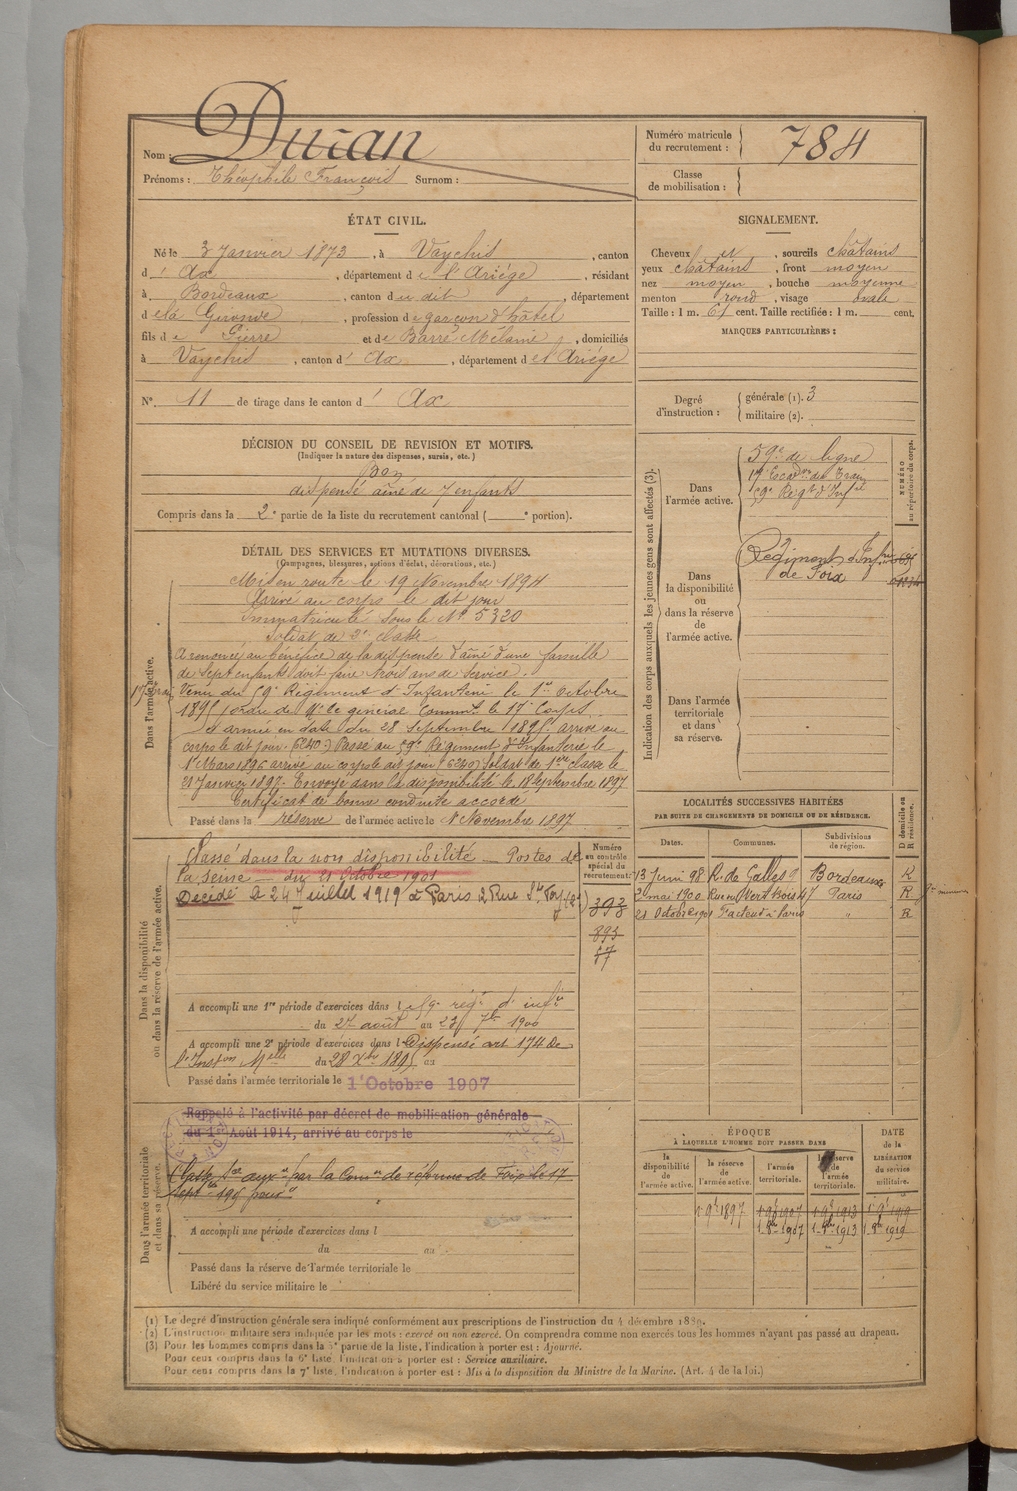 Nom : Duran
Prénoms : Théophile François Surnom :
Numéro matricule du recrutement : 784
Classe de mobilisation :
ÉTAT CIVIL.
Né le 3 Janvier 1873, à Vaychis, canton
d' Ax, département de l'Ariége, résidant
à Bordeaux, canton du dit, département
de la Gironde, profession de garçon d'hôtel
fils de Pierre et de Barre Mélanie, domiciliés
à Vaychis, canton d' Ax, département de l'Ariége
N° 11 de tirage dans le canton d' Ax
SIGNALEMENT.
Cheveux et, sourcils châtains
yeux châtains, front moyen
nez moyen, bouche moyenne
menton rond, visage ovale
Taille : 1 m. 61 cent. Taille rectifiée : 1 m. cent.
MARQUES PARTICULIÈRES :
Degré d'instruction : générale (1). 3
militaire (2).
DÉCISION DU CONSEIL DE REVISION ET MOTIFS.
(Indiquer la nature des dispenses, sursis, etc.)
Bon
dispensé aîné de 7 enfants
Compris dans la 2e partie de la liste du recrutement cantonal ( e portion).
DÉTAIL DES SERVICES ET MUTATIONS DIVERSES.
(Campagnes, blessures, actions d'éclat, décorations, etc.)
Dans l'armée active.
Mis en route le 19 Novembre 1894
Arrivé au corps le dit jour
Immatriculé sous le N° 5320
Soldat de 2e classe
A renoncé au bénéfice de la dispense d'aîné d'une famille
de sept enfants doit faire trois ans de service.
Venu du 59e Régiment d'Infanterie le 1er octobre
1895 (ordre de Mr le général Commt le 17e Corps
d'armée en date du 28 Septembre 1895) arrivé au
corps le dit jour. 6240) Passé au 59e Régiment d'Infanterie le
1er Mars 1896 arrivé au corps le dit jour (6240) Soldat de 1ère classe le
21 Janvier 1897. Envoyé dans la disponibilité le 18 Septembre 1897
Certificat de bonne conduite accordé
Passé dans la réserve de l'armée active le 1er Novembre 1897
Indication des corps auxquels les jeunes gens sont affectés (3).
NUMÉRO au répertoire du corps.
Dans l'armée active.
59e de ligne
17e Escadron du Train
59e Régt d'Infie
Dans la disponibilité ou dans la réserve de l'armée active.
Régiment d'Infrie
de Foix
Dans l'armée territoriale et dans sa réserve.
Dans la disponibilité ou dans la réserve de l'armée active.
Classé dans la non disponibilité — Postes de
la Seine — du 21 Octobre 1901
Décédé le 24 Juillet 1919 à Paris 2 Rue
Numéro au contrôle spécial du recrutement
393
893
57
A accompli une 1re période d'exercices dans le 59e régt d'infie
du 27 août au 23 7bre 1900
A accompli une 2e période d'exercices dans l Dispensé art. 174 de
l'Inston Melle du 28 Xbre 1895 au
Passé dans l'armée territoriale le 1er Octobre 1907
LOCALITÉS SUCCESSIVES HABITÉES
PAR SUITE DE CHANGEMENTS DE DOMICILE OU DE RÉSIDENCE.
Dates. Communes. Subdivisions de région. D domicile ou R résidence.
13 Juin 98 R. de Galles 9 Bordeaux R
2 mai 1900 Rue du Vert bois 47 Paris R
21 Octobre 1901 Facteur à Paris " R
Dans l'armée territoriale et dans sa réserve.
Rappelé à l'activité par décret de mobilisation générale
du 1er Août 1914, arrivé au corps le
Classé Sce auxre par la Comon de réforme de Foix le 17
A accompli une période d'exercices dans l
du au
Passé dans la réserve de l'armée territoriale le
Libéré du service militaire le
ÉPOQUE
À LAQUELLE L'HOMME DOIT PASSER DANS
la disponibilité de l'armée active. la réserve de l'armée active. l'armée territoriale. la réserve de l'armée territoriale.
DATE de la LIBÉRATION du service militaire.
1 9bre 1897 1 9bre 1907 1 9bre 1913 1 9bre 1919
1 8bre 1907 1 8bre 1913 1 8bre 1919
(1) Le degré d'instruction générale sera indiqué conformément aux prescriptions de l'instruction du 4 décembre 1889.
(2) L'instruction militaire sera indiquée par les mots : exercé ou non exercé. On comprendra comme non exercés tous les hommes n'ayant pas passé au drapeau.
(3) Pour les hommes compris dans la 5e partie de la liste, l'indication à porter est : Ajourné.
Pour ceux compris dans la 6e liste, l'indication à porter est : Service auxiliaire.
Pour ceux compris dans la 7e liste, l'indication à porter est : Mis à la disposition du Ministre de la Marine. (Art. 4 de la loi.)